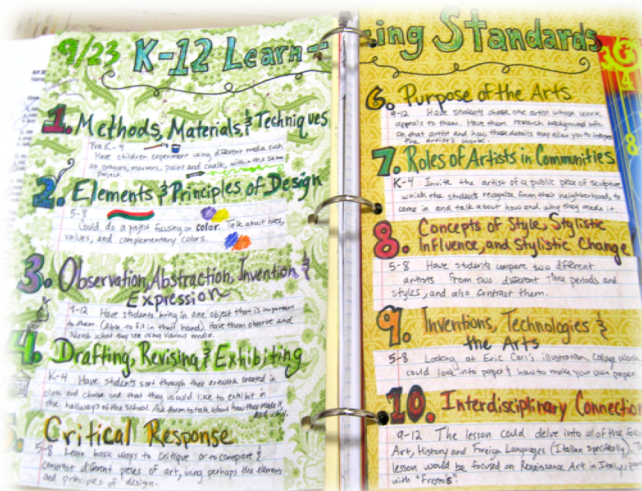 9/23 K-12 Learn-
1. Methods, Materials, & Techniques
Pre K-4
Have children experiment using different media such
as crayons, markers, paint and chalk, with in the same
project.
2. Elements & Principles of Design
5-8
Could do a project focusing on color. Talk about hues,
values, and complementary colors.
3. Observation, Abstraction, Invention &
Expression
9-12 Have students bring in one object that is important
to them. (Able to fit in their hand). Have them observe and
sketch what they see using various media.
4. Drafting, Revising & Exhibiting
K-4 Have students sort through their artwork created in
class and choose one that they would like to exhibit in
the hallways of the school. Ask them to talk about how they made it
and why.
Critical Response
5-8 Learn basic ways to critique or to compare &
contrast different pieces of art, using perhaps the elements
and principles of design.
ing Standards
6. Purpose of the Arts
9-12 Have students chose one artist whose work
appeals to them. Have them research background info
on that artist and how those details may allow you to interpret
the artist's work.
7. Roles of Artists in Communities
K-4 Invite the artist of a public piece of sculpture
which the students recognize from their neighborhood, to
come in and talk about how and why they made it.
8. Concepts of Style, Stylistic
Influence, and Stylistic Change
5-8 Have students compare two different
artists from two different time periods and
styles, and also contrast them.
9. Inventions, Technologies &
the Arts
5-8 Looking at Eric Carl's illustration Collage work
could look into paper & how to make your own paper
10. Interdisciplinary Connectio
9-12 The lesson could delve into all of the
Art, History and Foreign Languages (Italian specifically). The
lesson would be focused on Renaissance Art in Italy
with "Frescos".